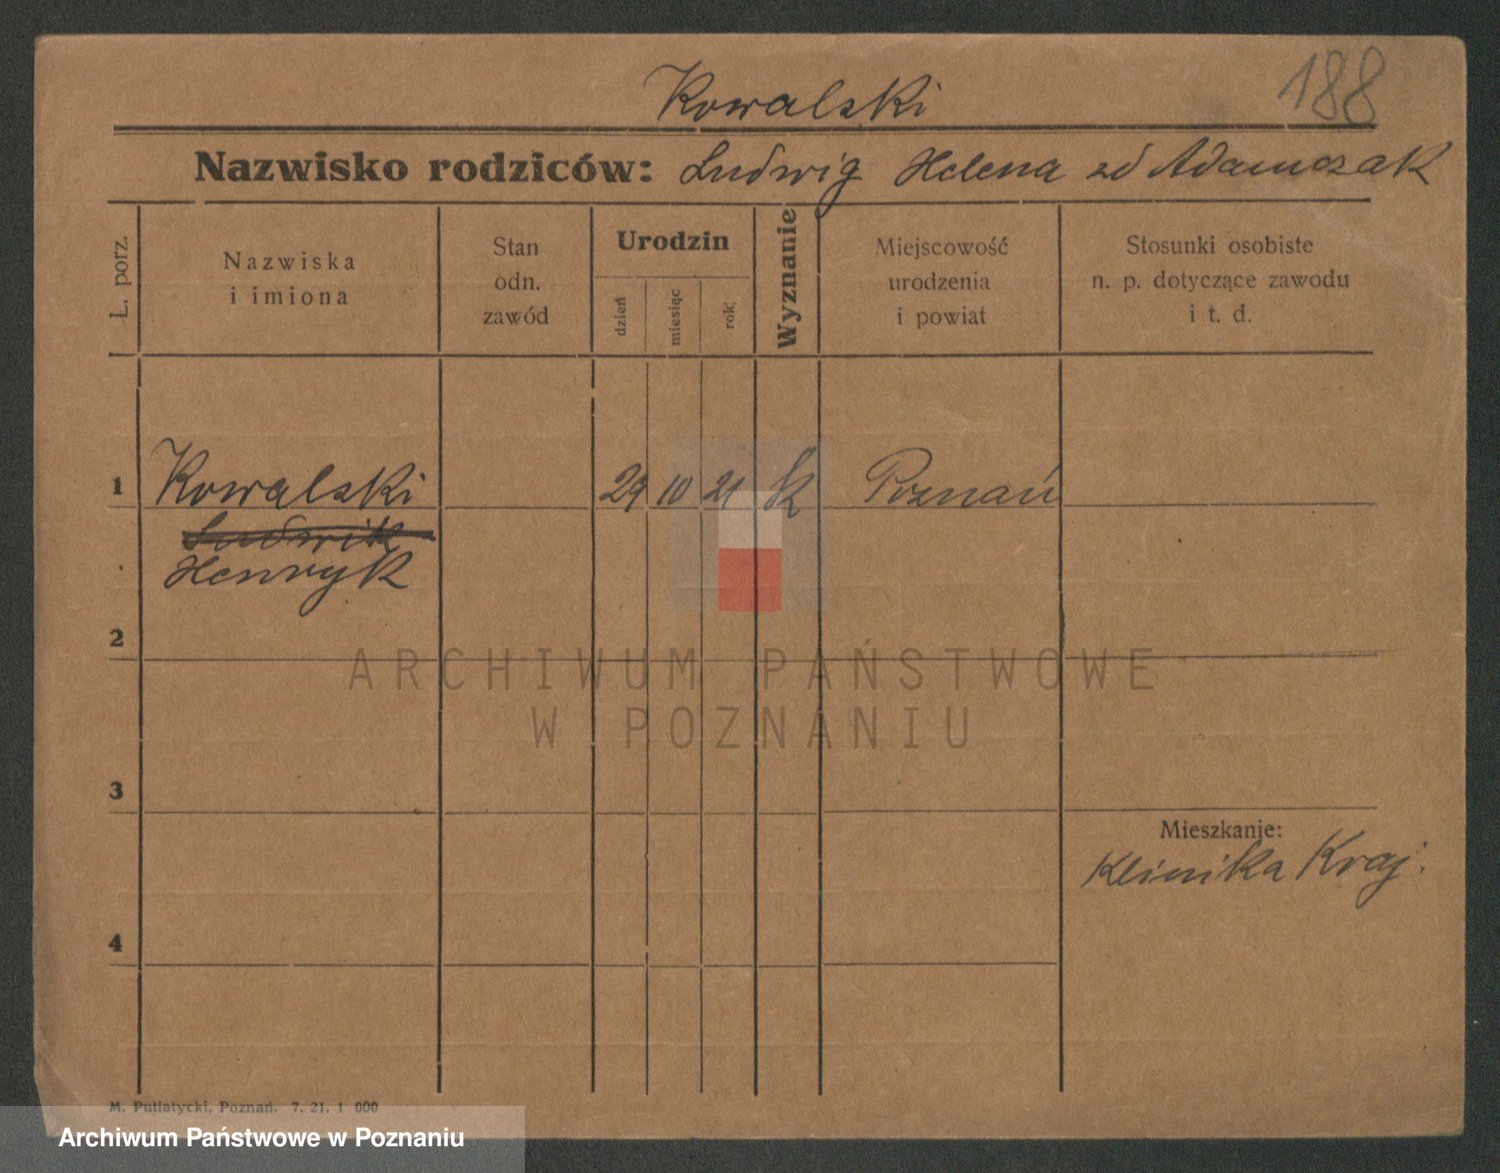 188
Kowalski
Nazwisko rodziców: Ludwig Helena zd Adamczak
L. porz.
Nazwiska
i imiona
Stan
odn.
zawód
Urodzin
dzień
miesiąc
rok
Wyznanie
Miejscowość
urodzenia
i powiat
Stosunki osobiste
n. p. dotyczące zawodu
i t. d.
1 Kowalski 29 10 21 k Poznań
Ludwik
Henryk
2
ARCHIWUM PAŃSTWOWE
W POZNANIU
3
Mieszkanie:
Klinika Kraj.
4
M. Putiatycki, Poznań. 7. 21. 1 000
Archiwum Państwowe w Poznaniu